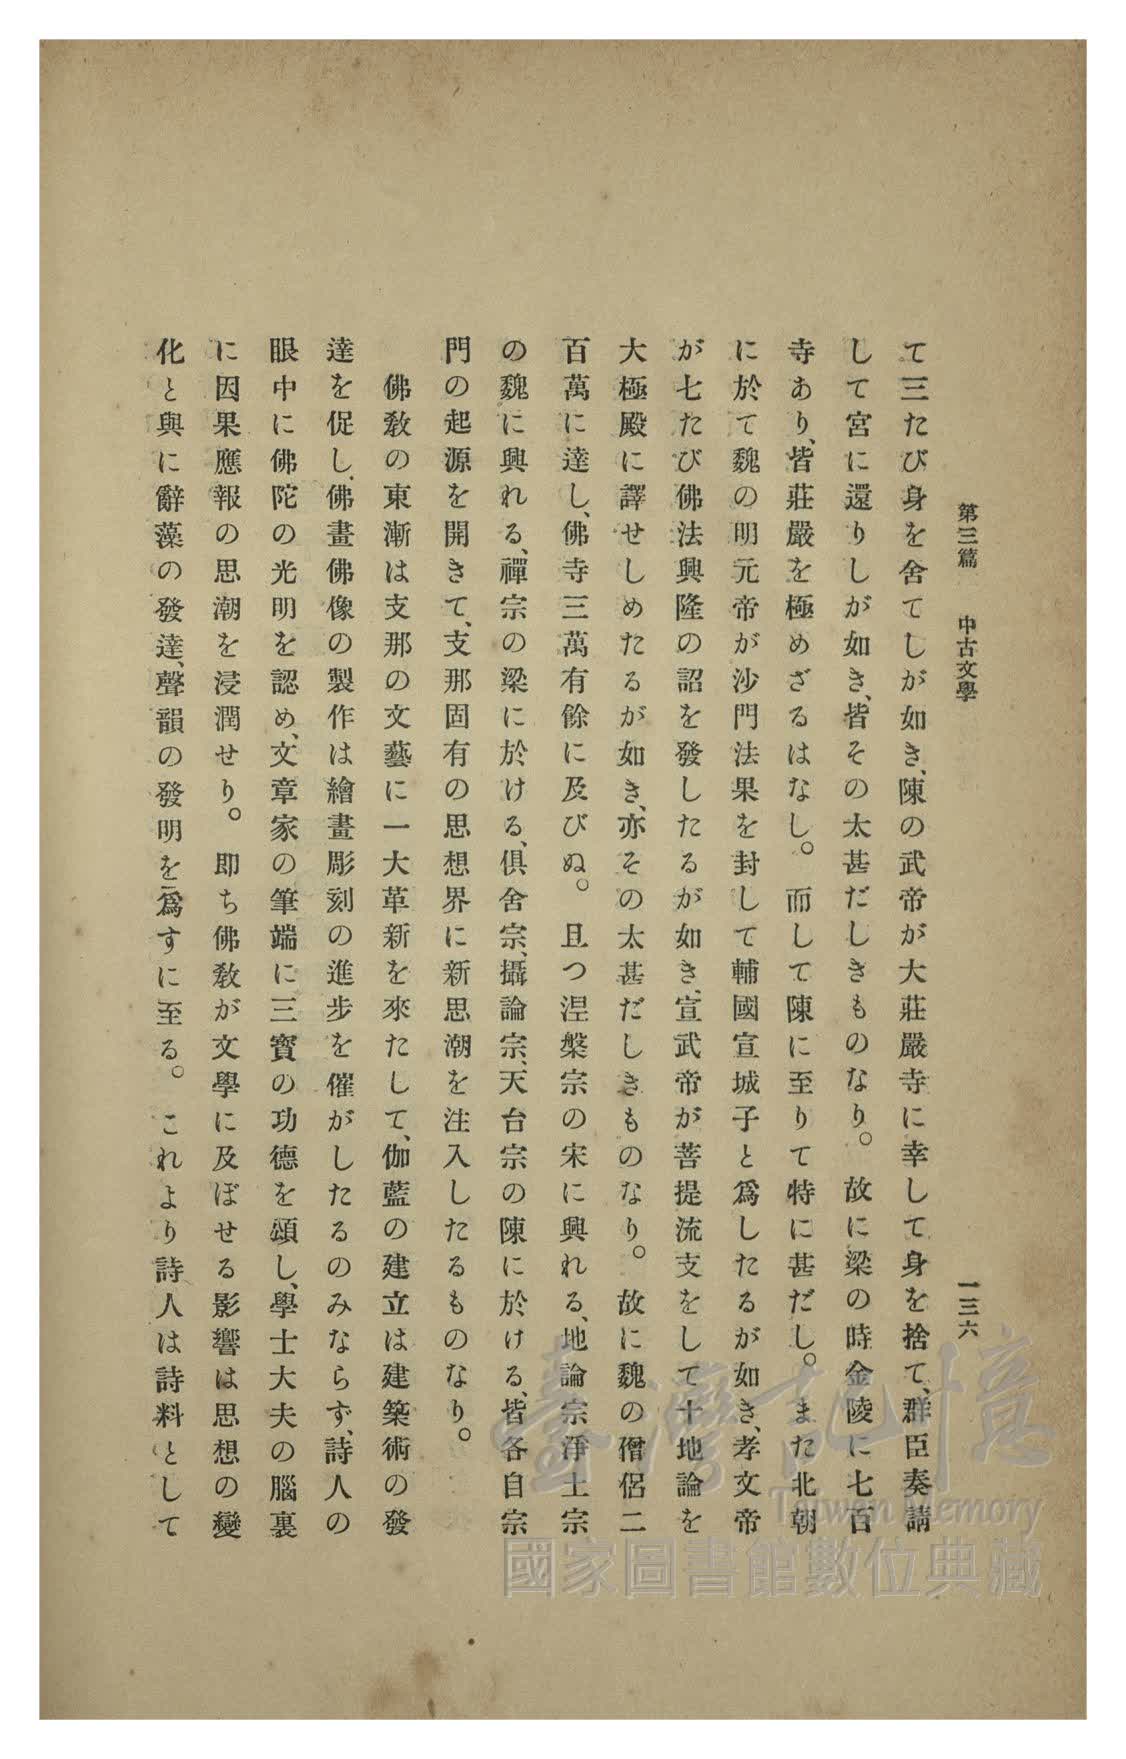 第三篇　中古文學　一三六
て三たび身を舍てしが如き、陳の武帝が大莊嚴寺に幸して身を捨て、群臣奏請
して宮に還りしが如き、皆その太甚だしきものなり。故に梁の時金陵に七百
寺あり、皆莊嚴を極めざるはなし。而して陳に至りて特に甚だし。また北朝
に於て魏の明元帝が沙門法果を封して輔國宣城子と爲したるが如き、孝文帝
が七たび佛法興隆の詔を發したるが如き、宣武帝が菩提流支をして十地論を
大極殿に譯せしめたるが如き、亦その太甚だしきものなり。故に魏の僧侶二
百萬に達し、佛寺三萬有餘に及びぬ。且つ涅槃宗の宋に興れる、地論宗淨土宗
の魏に興れる、禪宗の梁に於ける、俱舍宗、攝論宗、天台宗の陳に於ける、皆各自宗
門の起源を開きて、支那固有の思想界に新思潮を注入したるものなり。
佛敎の東漸は支那の文藝に一大革新を來たして、伽藍の建立は建築術の發
達を促し、佛畫佛像の製作は繪畫彫刻の進步を催がしたるのみならず、詩人の
眼中に佛陀の光明を認め、文章家の筆端に三寳の功德を頌し、學士大夫の腦裏
に因果應報の思潮を浸潤せり。即ち佛敎が文學に及ぼせる影響は思想の變
化と與に辭藻の發達、聲韻の發明を爲すに至る。これより詩人は詩料として
臺灣記憶
Taiwan Memory
國家圖書館數位典藏